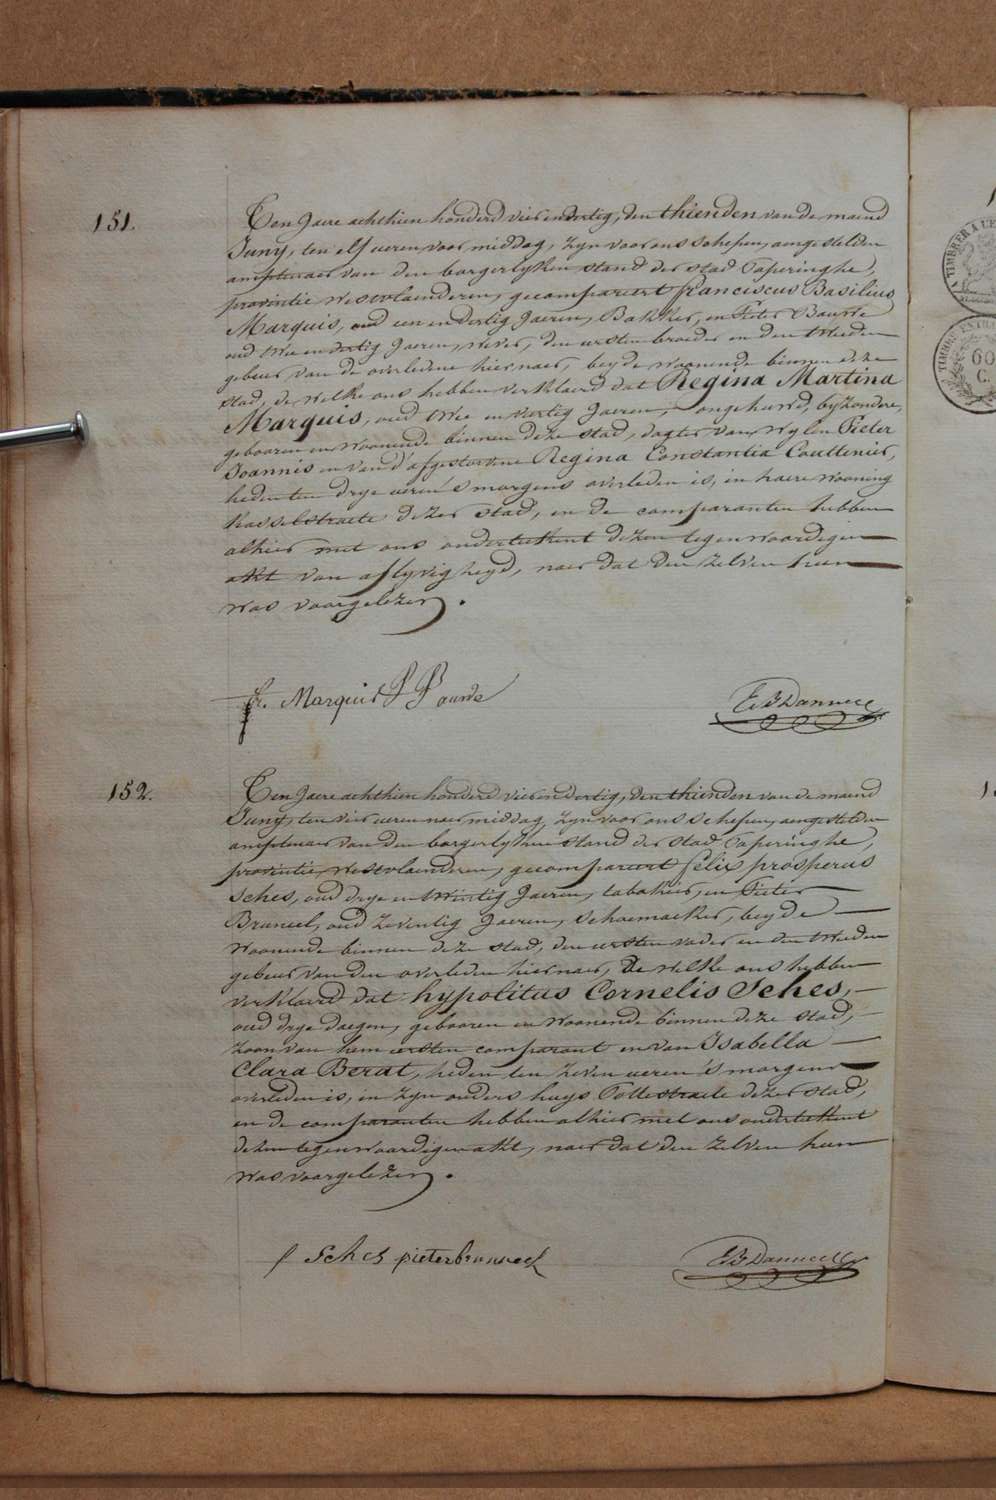 151.
Ten Jaere achthien honderd vier en dertig, den thienden van de maend
Juny, ten elf ueren voor middag, zyn voor ons schepen, aengestelden
amptenaer van den borgerlyken stand der stad Poperinghe,
provintie Westvlaenderen, gecompareert franciscus Basilius
Marquis, oud een en dertig Jaeren, Bakker, en Pieter Bauwe
oud twee en dertig Jaeren, wever, den eersten broeder en den tweeden
gebeur van de overledene hiernaer, beyde woonende binnen deze
stad, de welke ons hebben verklaerd dat Regina Martina
Marquis, oud twee en veertig Jaeren, ongehuwd, byzondere,
gebooren en woonende binnen deze stad, dogter van wylen Pieter
Joannis en van d'afgestorvene Regina Constantia Couttenier,
heden ten drye ueren 's morgens overleden is, in haere wooning
Kasselstraete dezer stad, en de comparanten hebben
alhier met ons onderteekent dezen tegenwoordigen
akt van aflyvigheyd, naer dat den zelven hun
was voorgelezen.
fr. Marquis P Bauwe
E. B Dannecl
152.
Ten Jaere achthien honderd vier en dertig, den thienden van de maend
Juny, ten vier ueren naer middag, zyn voor ons schepen, aengestelden
amptenaer van den borgerlyken stand der stad Poperinghe,
provintie Westvlaenderen, gecompareert felix prosperus
Sches, oud drye en twintig Jaeren, tabakier, en Pieter
Bruneel, oud zeventig Jaeren, Schoemaeker, beyde
woonende binnen deze stad, den eersten vader en den tweeden
gebeur van den overleden hiernaer, De welke ons hebben
verklaerd dat hypolitus Cornelis Sches,
oud drye daegen, gebooren en woonende binnen deze stad,
zoon van hem eersten comparant en van Isabella
Clara Berat, heden ten zeven ueren 's morgens
overleden is, in zyn ouders huys Pottestraete dezer stad,
en de comparanten hebben alhier met ons onderteekent
dezen tegenwoordigen akt, naer dat den zelven hun
was voorgelezen.
f Sches pieter bruneel
E B Dannecl
TIMBRE
60
C.